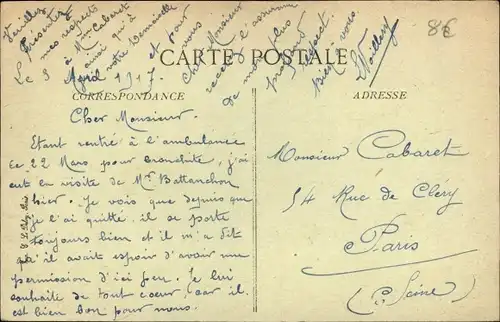 CARTE POSTALE
CORRESPONDANCE
ADRESSE
8€
Le 3 April 1917.
Cher Monsieur.
Etant rentré à l'ambulance
ce 22 Mars pour bronchite, j'ai
eut la visite de Mr Battanchon
hier. Je vois que depuis que
je l'ai quitté, il se porte
toujours bien et il m'a dit
qu'il avait espoir d'avoir une
permission d'ici peu. Je lui
souhaite de tout coeur, car il
est bien bon pour nous.
Veuillez
présentez
mes respects
à Mme Cabaret
ainsi qu'à
votre Demoiselle
et pour
vous
Cher Monsieur
recevez l'assurance
de mon plus
profond
respect.
Bien à vous.
Monsieur Cabaret
54 Rue de Clery
Paris
(Seine)